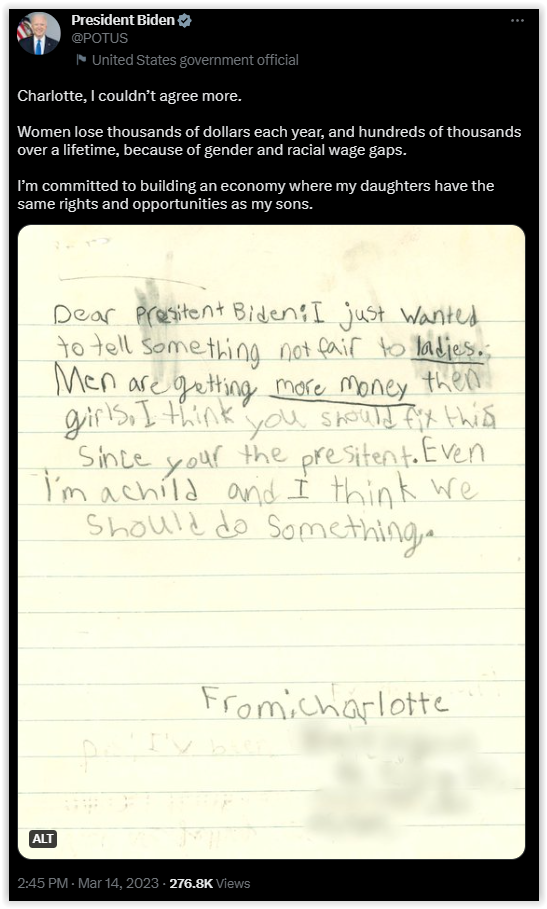 President Biden
@POTUS
United States government official
Charlotte, I couldn’t agree more.
Women lose thousands of dollars each year, and hundreds of thousands
over a lifetime, because of gender and racial wage gaps.
I’m committed to building an economy where my daughters have the
same rights and opportunities as my sons.
Dear presitent Biden: I just wanted
to tell something not fair to ladies.
Men are getting more money then
girls. I think you should fix this
Since your the presitent. Even
I'm a child and I think we
should do something.
From: charlotte
ALT
2:45 PM · Mar 14, 2023 · 276.8K Views